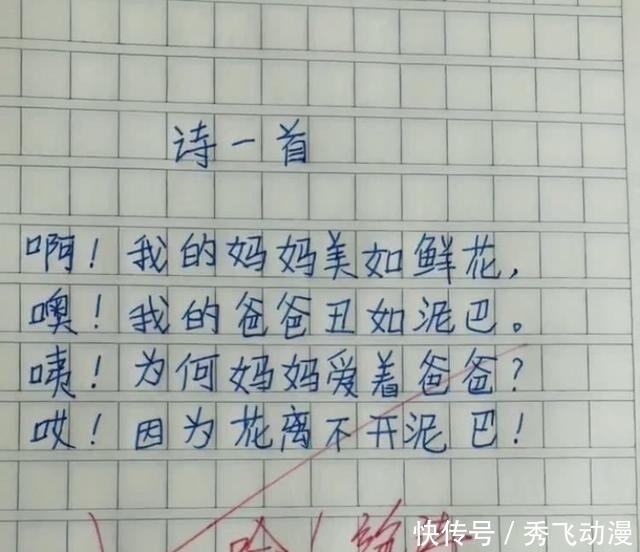 诗一首
啊！我的妈妈美如鲜花，
噢！我的爸爸丑如泥巴。
咦！为何妈妈爱着爸爸？
哎！因为花离不开泥巴！
快传号／秀飞动漫